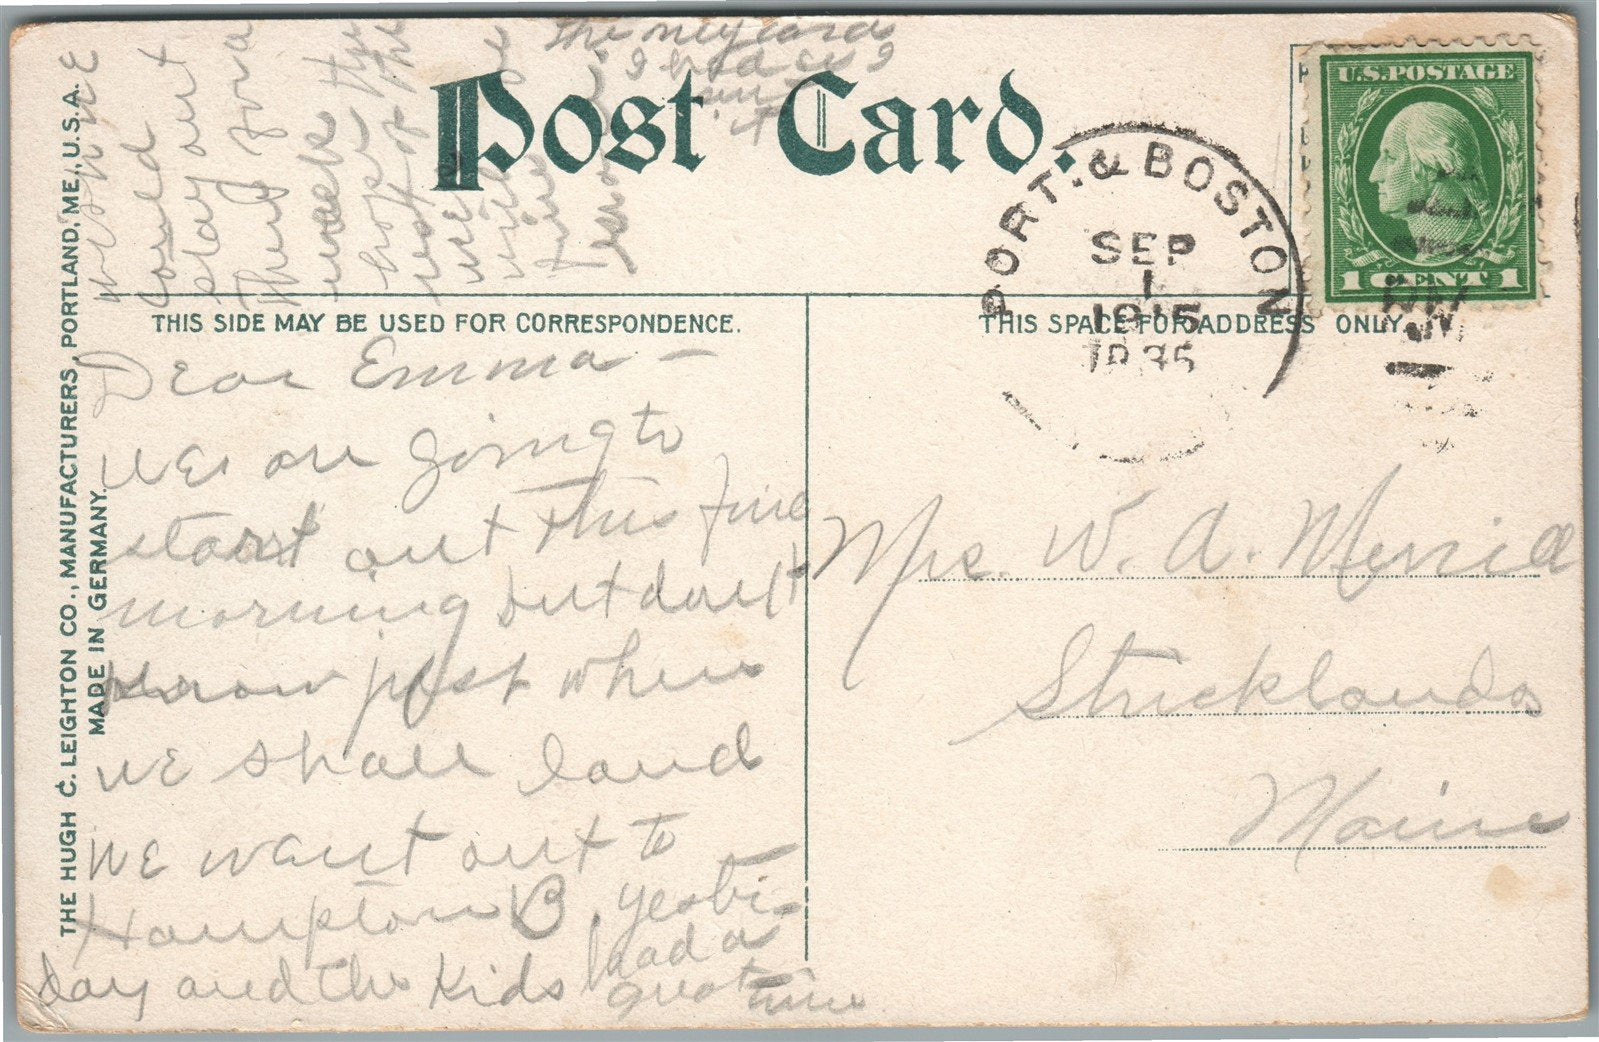 Post Card.
THE HUGH C. LEIGHTON CO., MANUFACTURERS, PORTLAND, ME., U.S.A.
MADE IN GERMANY.
THIS SIDE MAY BE USED FOR CORRESPONDENCE.
THIS SPACE FOR ADDRESS ONLY.
U.S. POSTAGE
1 CENT 1
PORT. & BOSTON
SEP
1
1915
Dear Emma —
we are going to
start out this fine
morning but don't
know just where
we shall land
we want out to
Hampton B. yester
day and the kids had a
great time
wish we
could
stay out
there for a
week
hope the
rest of the
Mrs. W. A. Merrill
Stricklands
Maine